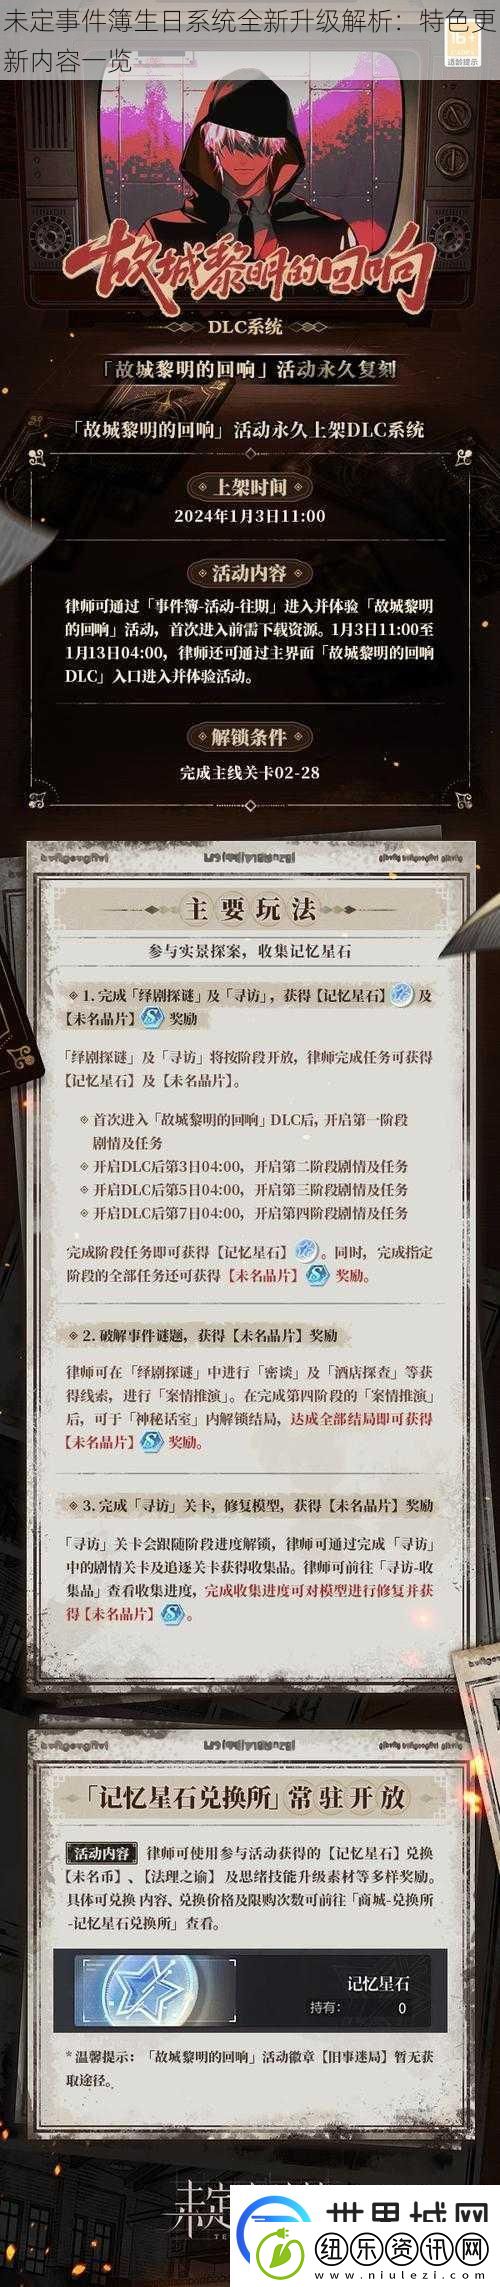 未定事件簿生日系统全新升级解析：特色更
新内容一览
16+
适龄提示
故城黎明的回响
DLC系统
「故城黎明的回响」活动永久复刻
「故城黎明的回响」活动永久上架DLC系统
上架时间
2024年1月3日11:00
活动内容
律师可通过「事件簿-活动-往期」进入并体验「故城黎明
的回响」活动，首次进入前需下载资源。1月3日11:00至
1月13日04:00，律师还可通过主界面「故城黎明的回响
DLC」入口进入并体验活动。
解锁条件
完成主线关卡02-28
主要玩法
参与实景探案，收集记忆星石
1. 完成「绎剧探谜」及「寻访」，获得【记忆星石】及
【未名晶片】奖励
「绎剧探谜」及「寻访」将按阶段开放，律师完成任务可获得
【记忆星石】及【未名晶片】。
首次进入「故城黎明的回响」DLC后，开启第一阶段
剧情及任务
开启DLC后第3日04:00，开启第二阶段剧情及任务
开启DLC后第5日04:00，开启第三阶段剧情及任务
开启DLC后第7日04:00，开启第四阶段剧情及任务
完成阶段任务即可获得【记忆星石】。同时，完成指定
阶段的全部任务还可获得【未名晶片】奖励。
2. 破解事件谜题，获得【未名晶片】奖励
律师可在「绎剧探谜」中进行「密谈」及「酒店探查」等获
得线索，进行「案情推演」。在完成第四阶段的「案情推演」
后，可于「神秘话室」内解锁结局，达成全部结局即可获得
【未名晶片】奖励。
3. 完成「寻访」关卡，修复模型，获得【未名晶片】奖励
「寻访」关卡会跟随阶段进度解锁，律师可通过完成「寻访」
中的剧情关卡及追逐关卡获得收集品。律师可前往「寻访-收
集品」查看收集进度，完成收集进度可对模型进行修复并获
得【未名晶片】。
「记忆星石兑换所」常驻开放
活动内容 律师可使用参与活动获得的【记忆星石】兑换
【未名币】、【法理之谕】及思绪技能升级素材等多样奖励。
具体可兑换内容、兑换价格及限购次数可前往「商城-兑换所
-记忆星石兑换所」查看。
记忆星石
持有： 0
*温馨提示：「故城黎明的回响」活动徽章【旧事迷局】暂无获
取途径。
未定
世界城网
纽乐资讯网
www.niulezi.com